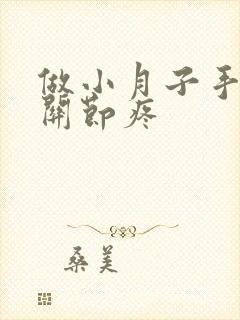 做小月子手
關節疼
桑美